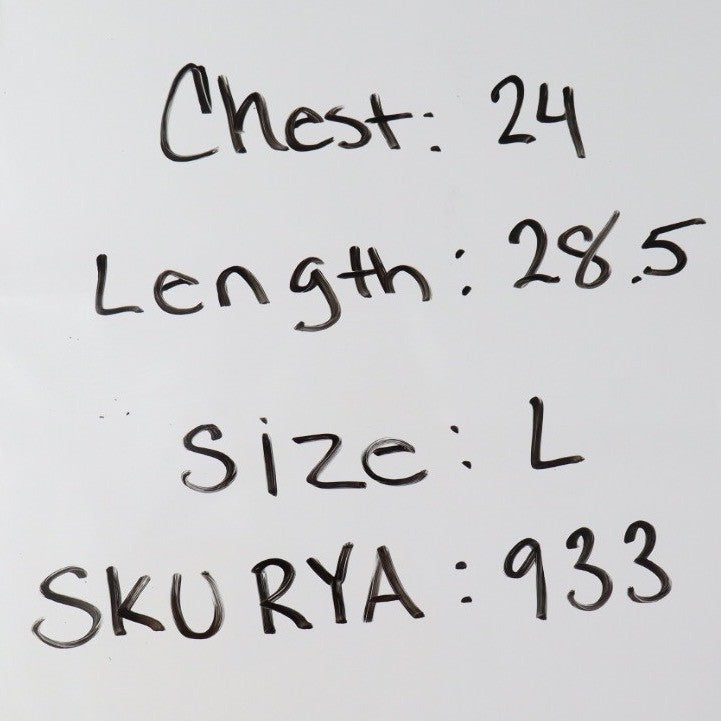 Chest: 24
Length: 28.5
Size: L
SKU RYA: 933